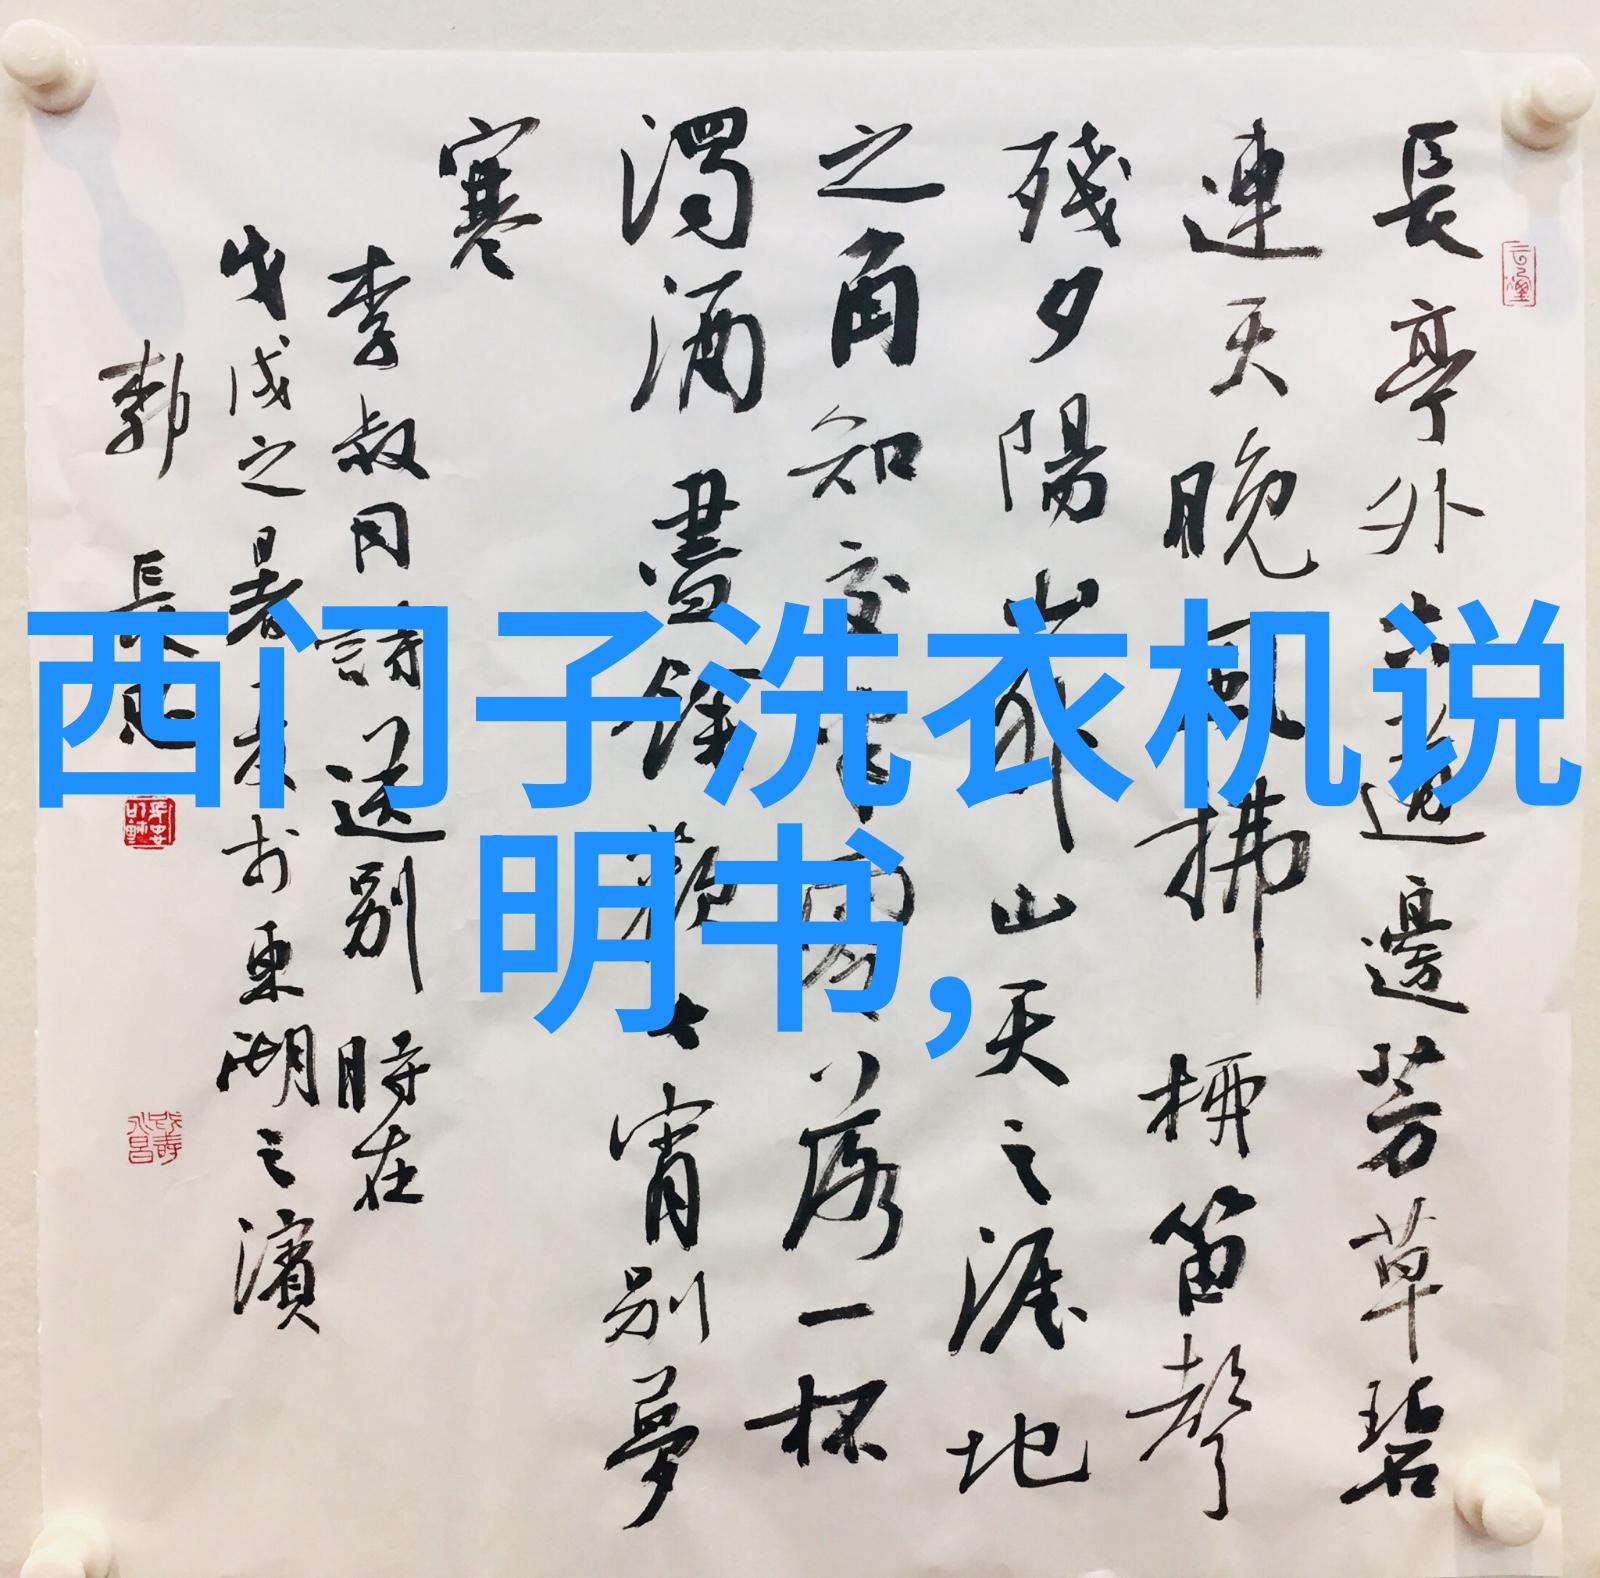 西门子洗衣机说
明书,
長亭外古道邊芳草碧
連天晚風拂柳笛聲
殘夕陽山外山天之涯地
之角知交半零落一杯
濁酒盡餘歡今宵別夢
寒
李叔同詩送別 時在
戊戌之暑 於東湖之濱